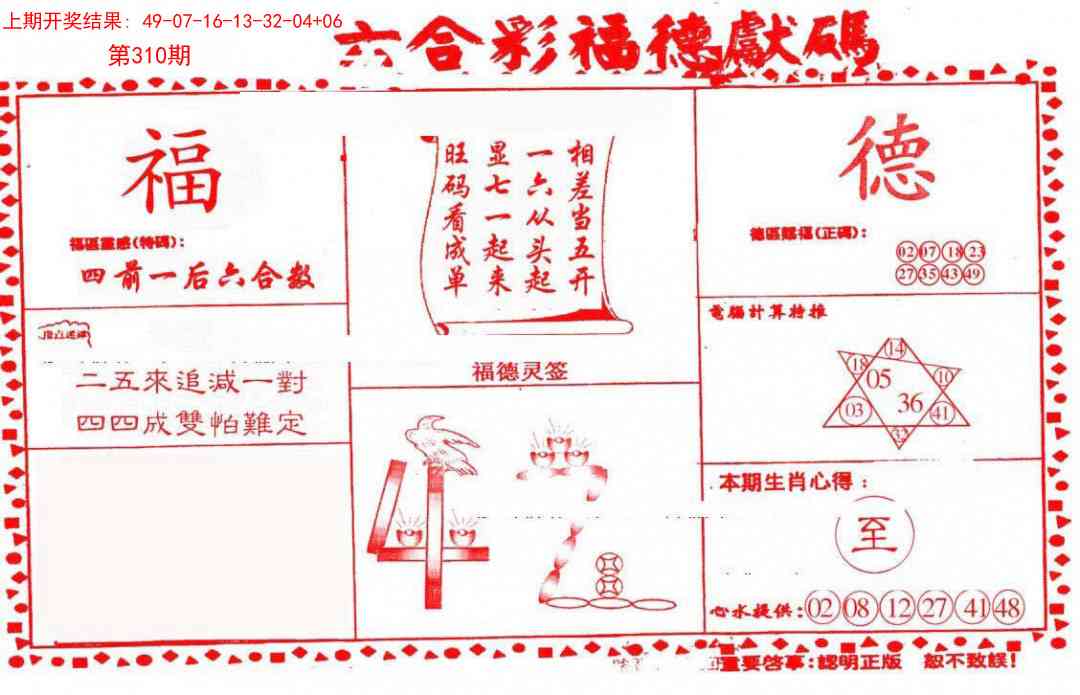 上期开奖结果: 49-07-16-13-32-04+06
第310期
六合彩福德獻碼
福
福區靈感(特碼):
四前一后六合数
二五來追減一對
四四成雙怕難定
相差当五开
一六从头起
显七一起来
旺码看成单
福德灵签
德
德區賜福(正碼):
02 07 18 23
27 35 43 49
電腦計算特推
14
18
05
10
03
36
41
32
本期生肖心得:
至
心水提供:02 08 12 27 41 48
重要啓事:認明正版 恕不致誤!